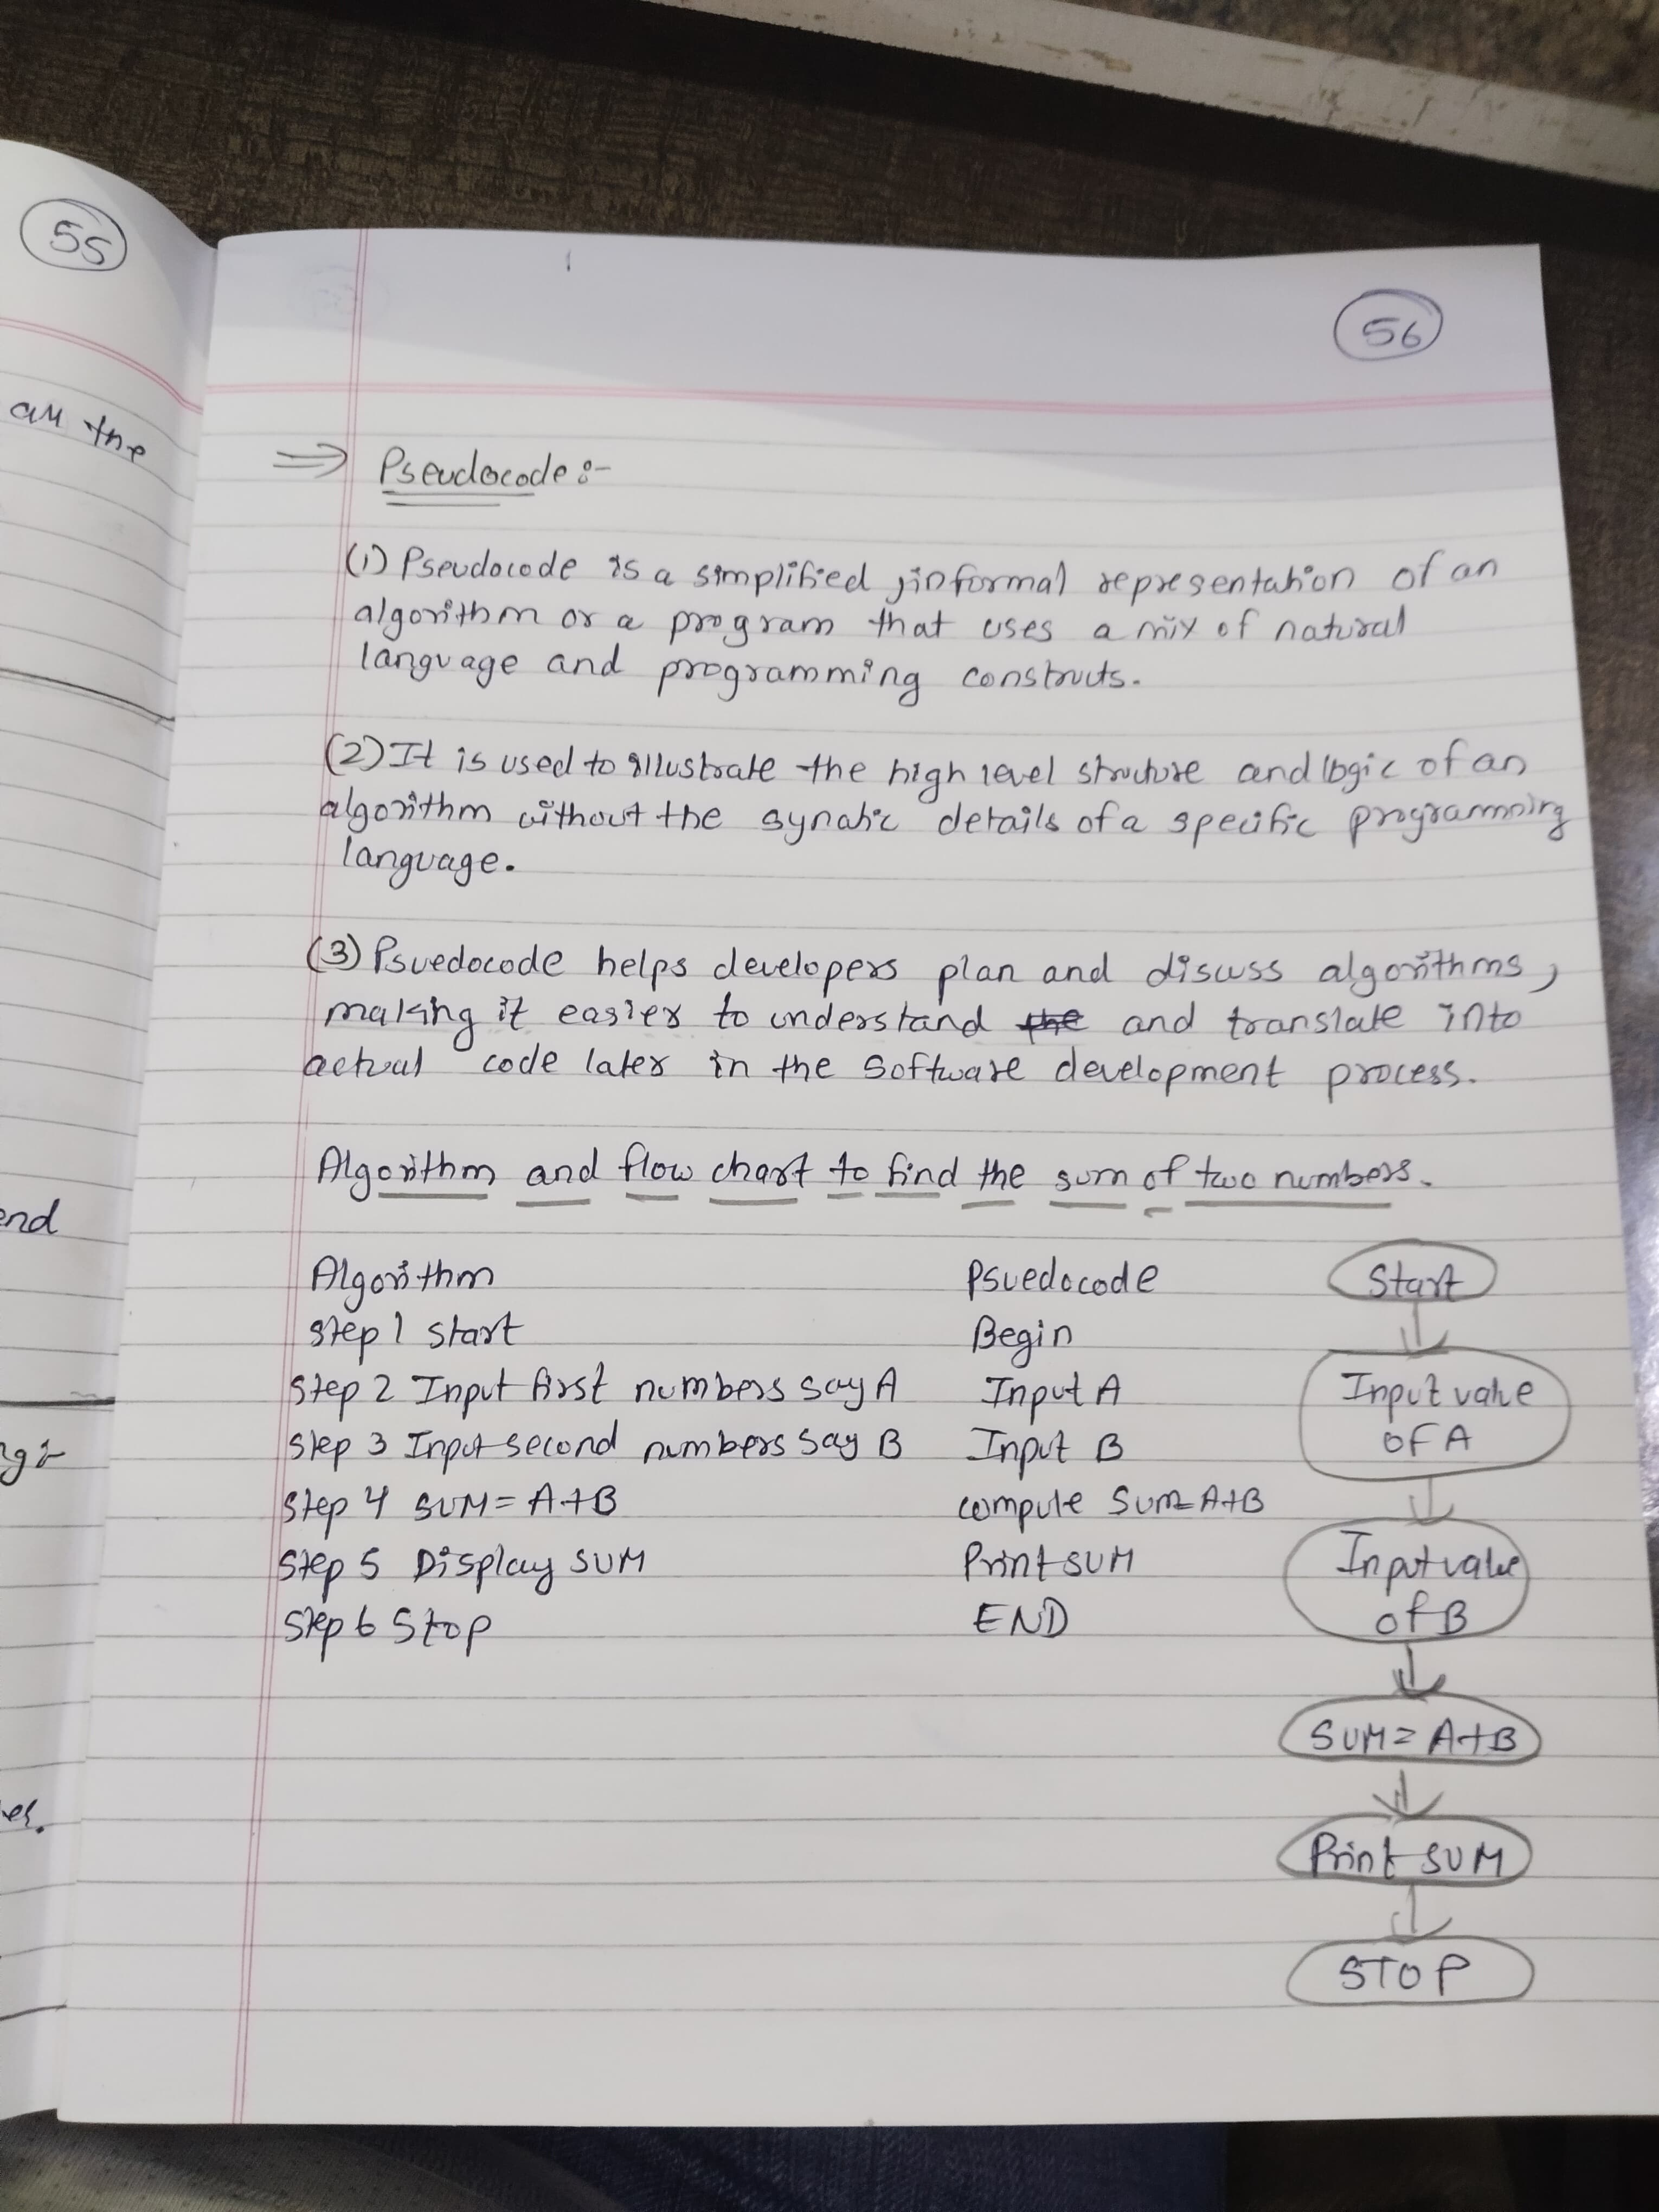 55
all the
end
56
⇒ Pseudocode :-
(1) Pseudocode is a simplified, informal representation of an
algorithm or a program that uses a mix of natural
language and programming constructs.
(2) It is used to illustrate the high level structure and logic of an
algorithm without the synatic details of a specific programming
language.
(3) Psuedocode helps developers plan and discuss algorithms,
making it easier to understand the and translate into
actual code later in the software development process.
Algorithm and flow chart to find the sum of two numbers.
Algorithm
Step 1 Start
Step 2 Input first numbers say A
Step 3 Input second numbers say B
Step 4 SUM = A+B
Step 5 Display SUM
Step 6 Stop
Psuedocode
Begin
Input A
Input B
compute Sum=A+B
Print SUM
END
Start
Input value
of A
Input value
of B
SUM = A+B
Print SUM
STOP